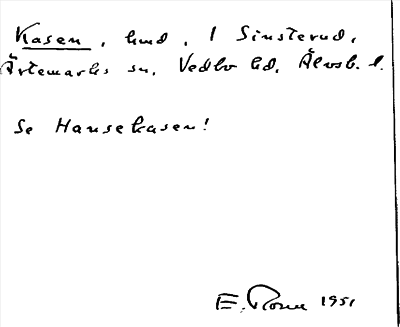 Kasen, hmd, 1 Sinsterud,
Ärtemarks sn, Vedbo hd, Älvsb. l.
Se Hansekasen!
E. Rosu 1951